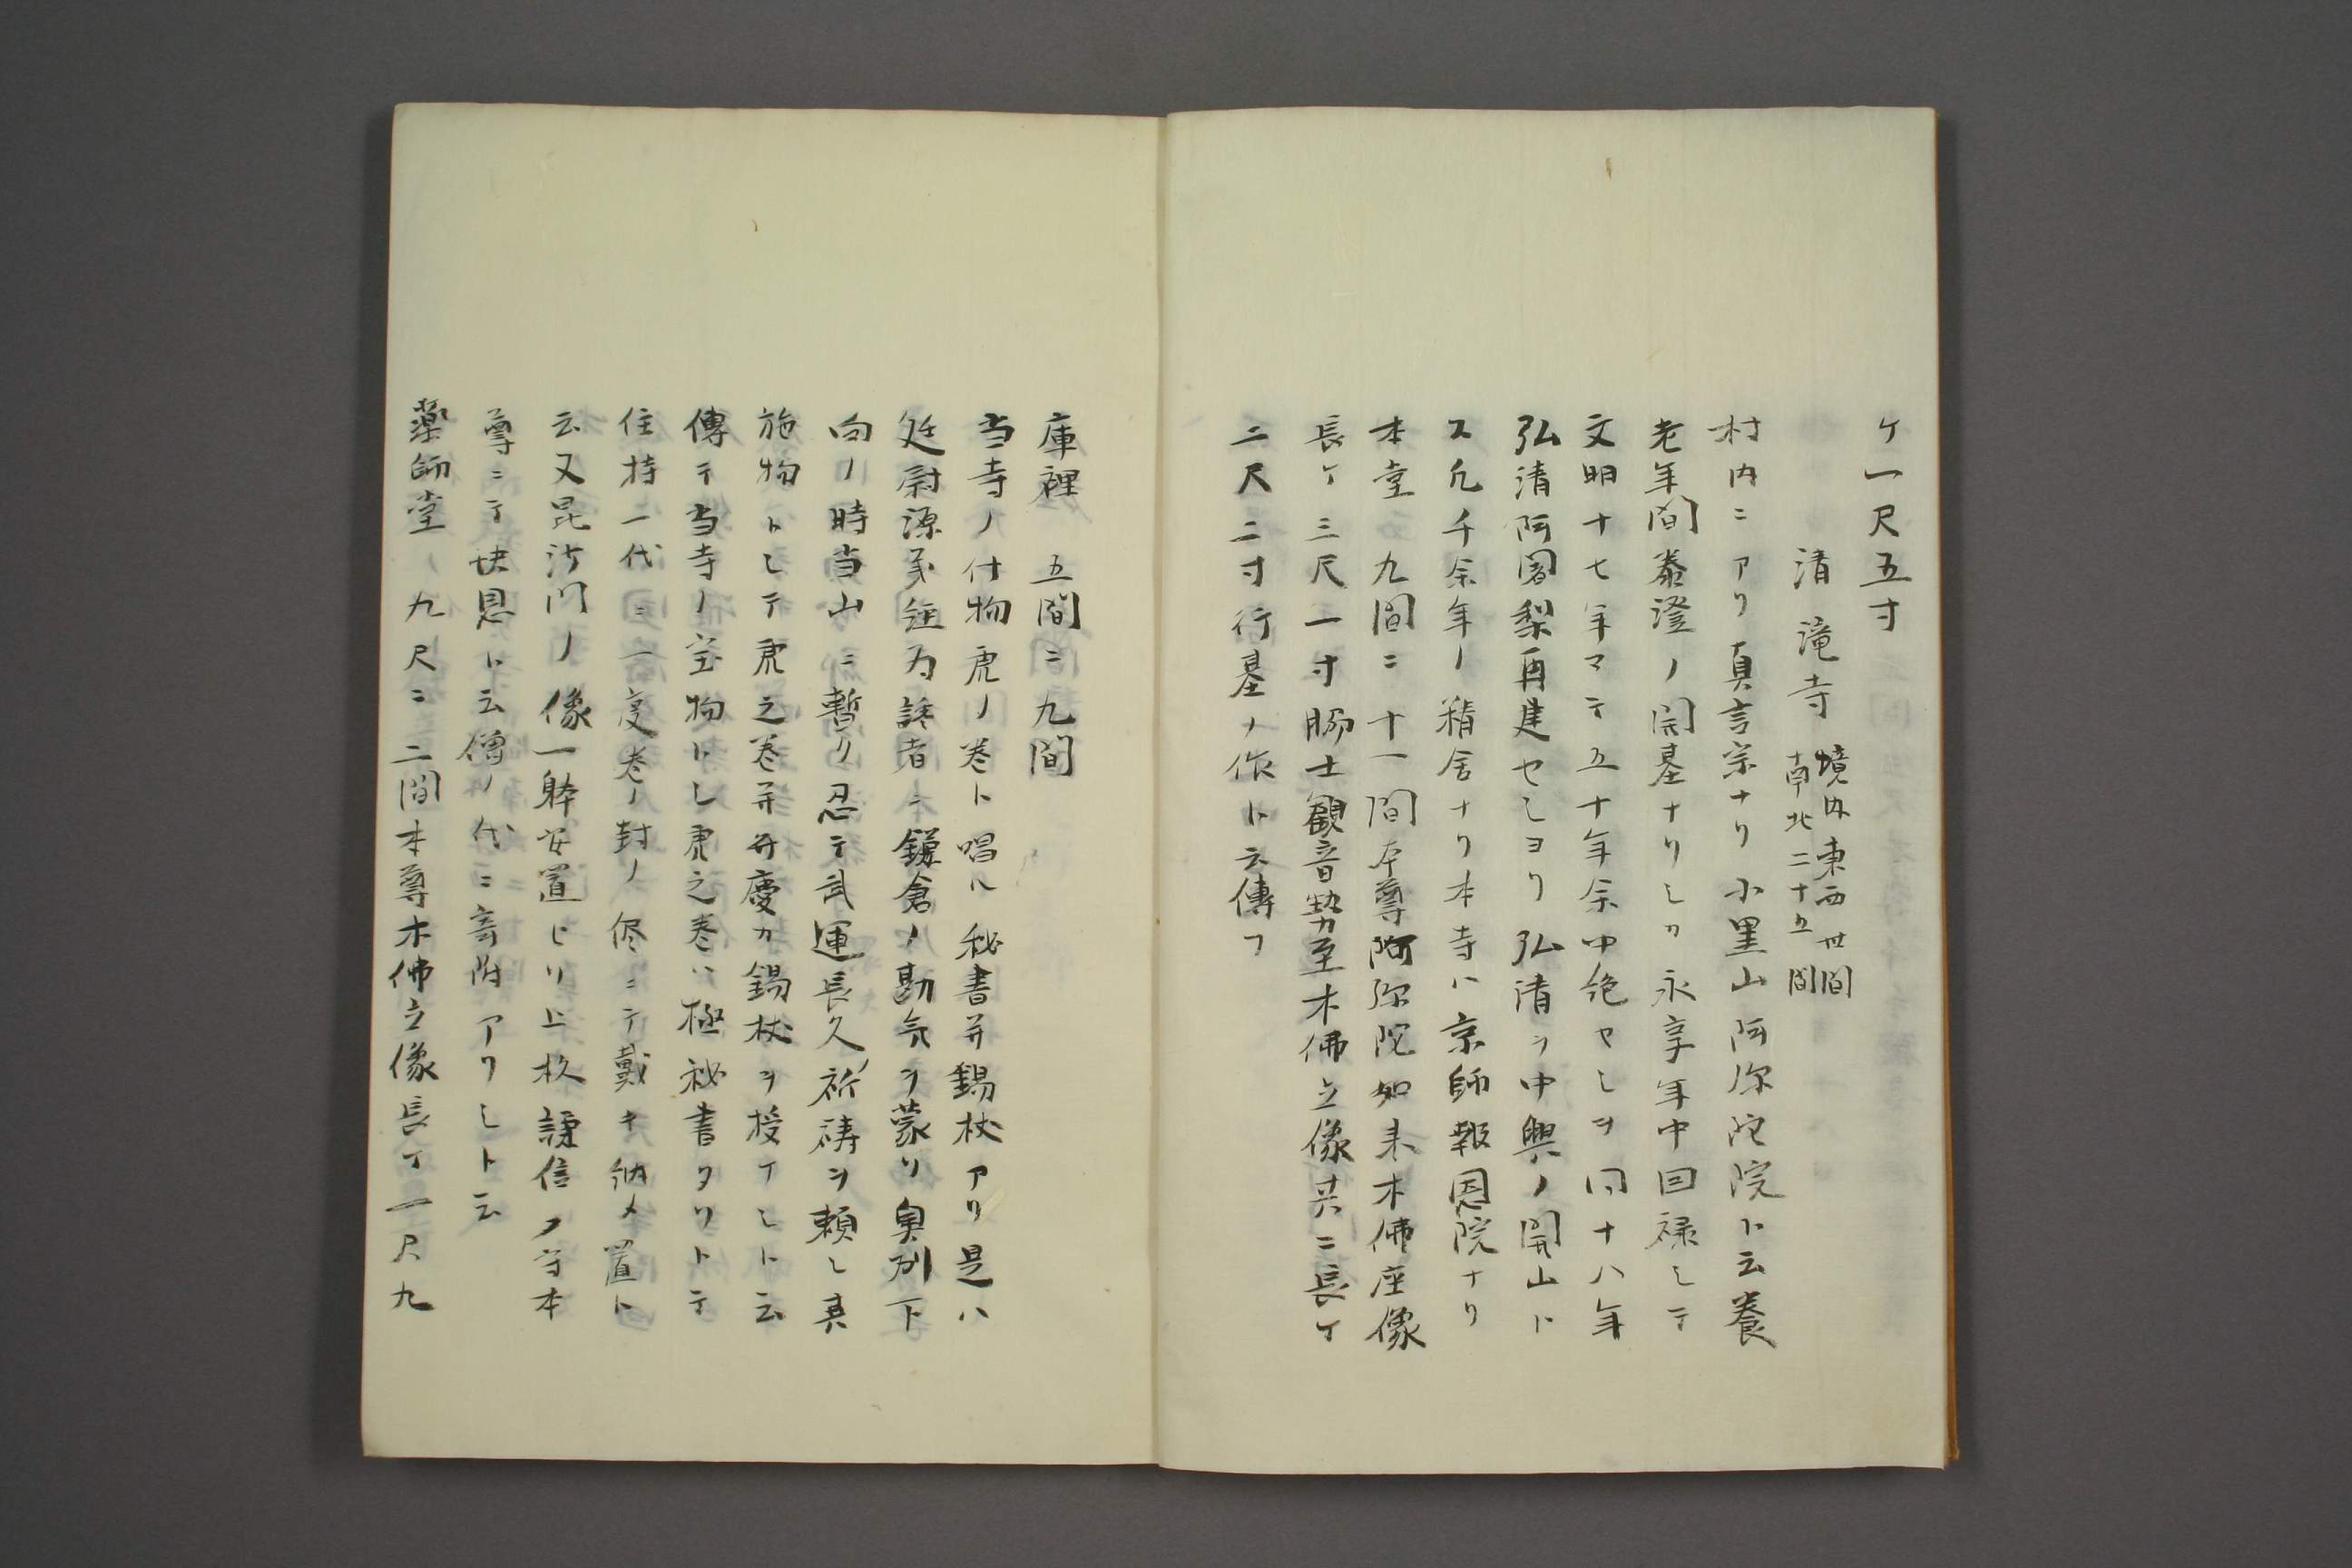 ケ一尺五寸
清滝寺 境内東西卅間
南北二十五間
村内ニアリ真言宗ナリ小黒山阿弥陀院ト云養
老年間泰澄ノ開基ナリシカ永享年中回禄シテ
文明十七年マテ五十年余中絶セシヲ同十八年
弘清阿闍梨再建セシヨリ弘清ヲ中興ノ開山ト
ス凡千余年ノ精舎ナリ本寺ハ京師報恩院ナリ
本堂 九間ニ十一間本尊阿弥陀如来木佛座像
長ケ三尺一寸脇士観音勢至木佛立像共ニ長ケ
二尺二寸行基ノ作ト云傳フ
庫裡 五間ニ九間
当寺ノ什物虎ノ巻ト唱ル秘書并錫杖アリ是ハ
廷尉源義経為讒者ニ鎌倉ノ勘気ヲ蒙リ奥州下
向ノ時当山ニ暫ク忍テ武運長久ノ祈祷ヲ頼シ其
施物トシテ虎之巻并弁慶カ錫杖ヲ授ケシト云
傳テ当寺ノ宝物トシ虎之巻ハ極秘書タリトテ
住持一代ニ一度巻ノ封ノ侭ニテ戴キ納メ置ト
云又毘沙門ノ像一躰安置セリ上杦謙信ノ守本
尊ニテ快恩ト云僧ノ代ニ寄附アリシト云
薬師堂 九尺ニ二間本尊木佛立像長ケ一尺九